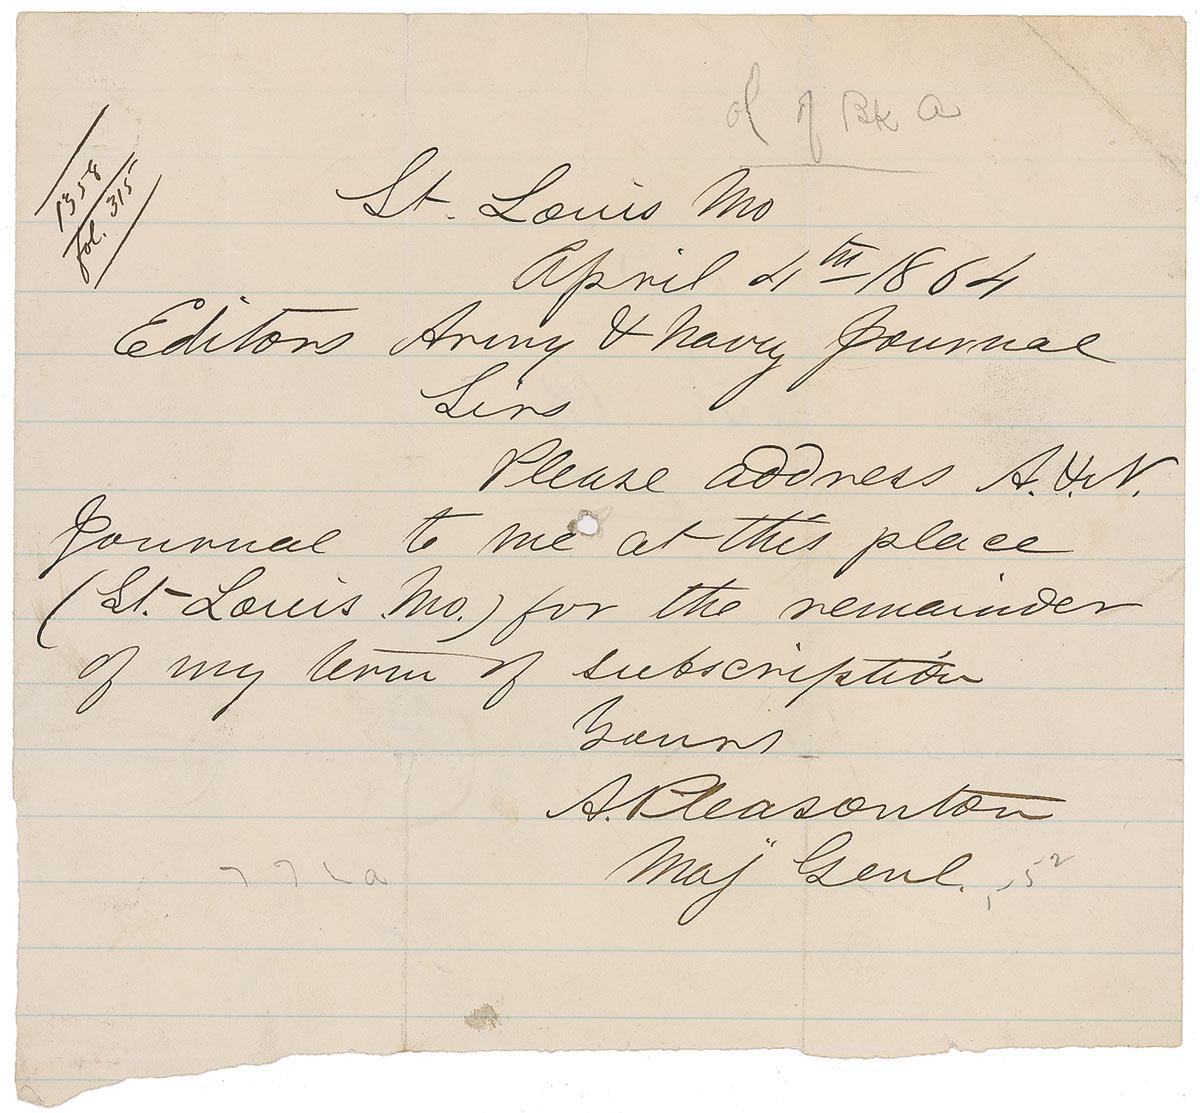 of Bk a
1358
fol. 315
St. Louis Mo
April 4th 1864
Editors Army & Navy Journal
Sirs
Please address A. & N.
Journal to me at this place
(St. Louis Mo.) for the remainder
of my term of subscription
Yours
A. Pleasonton
Maj Genl.